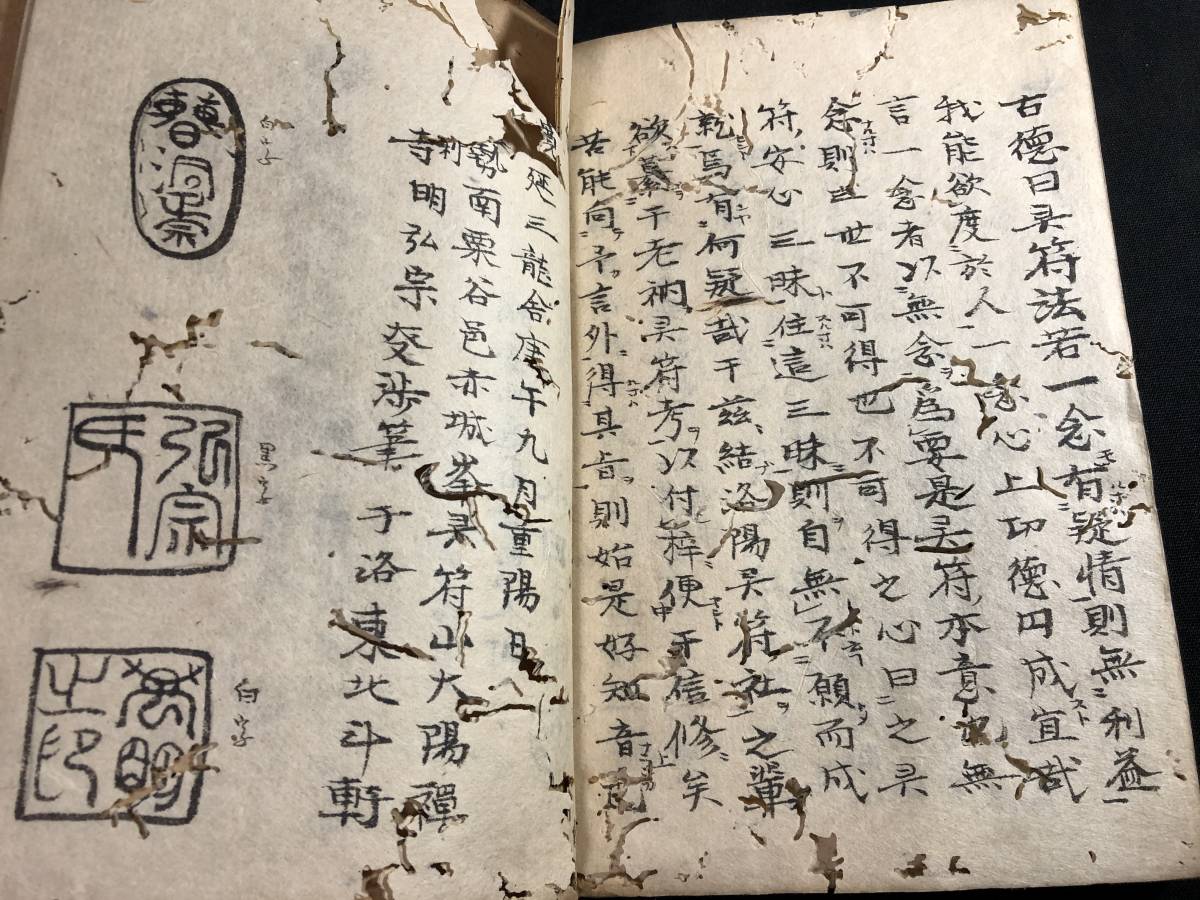 古德曰灵符法若一念有疑情則無利益
我能欲度於人一念心上功德円成宜哉
言一念者以無念為要是灵符亦意也無
念則三世不可得也不可得之心曰之灵
符安心三昧住這三昧則自無不願而成
就焉有何疑哉于茲結洛陽灵符社之輩
欲纂于老衲灵符考以付梓便于信修矣
若能向予言外得其旨則始是好知音
延三龍舍庚午九月重陽日
勢南粟谷邑赤城峯灵符山大陽禪
寺明弘宗交渉筆于洛東北斗軒
白字
黒字
弘宗
白字
萬明之印